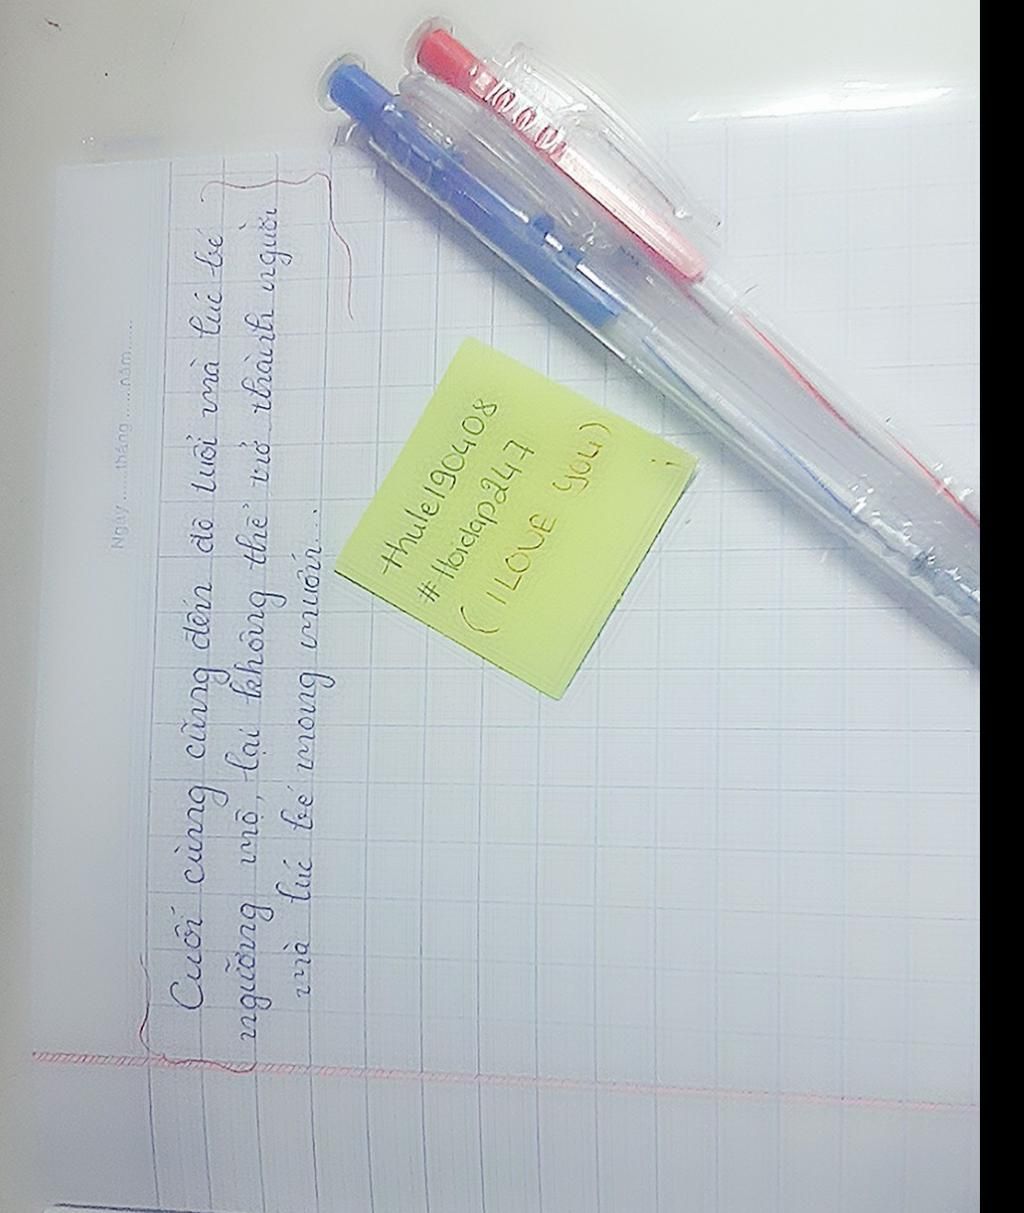 Ngày......tháng......năm......
Cuối cùng cũng đến độ tuổi mà lúc bé
ngưỡng mộ, lại không thể trở thành người
mà lúc bé mong muốn...
thule190408
#Hoidap247
(I LOVE YOU)